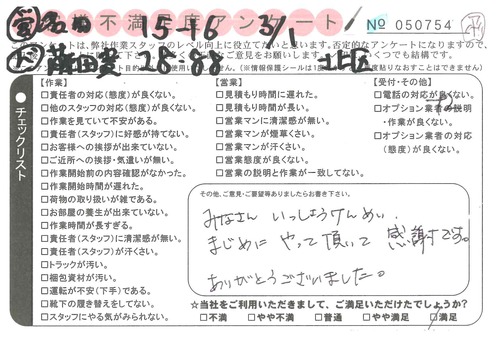 不満足度アンケート
№ 050754
15-46 3/1
28-88 北区
チェックリスト
【作業】
□責任者の対応(態度)が良くない。
□他のスタッフの対応(態度)が良くない。
□作業を見ていて不安がある。
□責任者(スタッフ)に好感が持てない。
□お客様への挨拶が出来ていない。
□ご近所への挨拶・気遣いが無い。
□作業開始前の内容確認がなかった。
□作業開始時間が遅れた。
□荷物の取り扱いが雑である。
□お部屋の養生が出来ていない。
□作業時間が長すぎる。
□責任者(スタッフ)に清潔感が無い。
□責任者(スタッフ)が汗くさい。
□トラックが汚い。
□梱包資材が汚い。
□運転が不安(下手)である。
□靴下の履き替えをしてない。
□スタッフにやる気がみられない。
【営業】
□見積もり時間に遅れた。
□見積もり時間が長い。
□営業マンに清潔感が無い。
□営業マンが煙草くさい。
□営業マンが汗くさい。
□営業態度が良くない。
□営業の説明と作業が一致してない。
【受付・その他】
□電話の対応が良くない。
□オプション業者の説明
・作業が良くない。
□オプション業者の対応
(態度)が良くない。
その他、ご意見・ご要望等ありましたらお書き下さい。
みなさん いっしょうけんめい、
まじめに やって頂いて 感謝です。
ありがとうございました。
☆当社をご利用いただきまして、ご満足いただけたでしょうか?
□不満 □やや不満 □普通 □やや満足 □満足